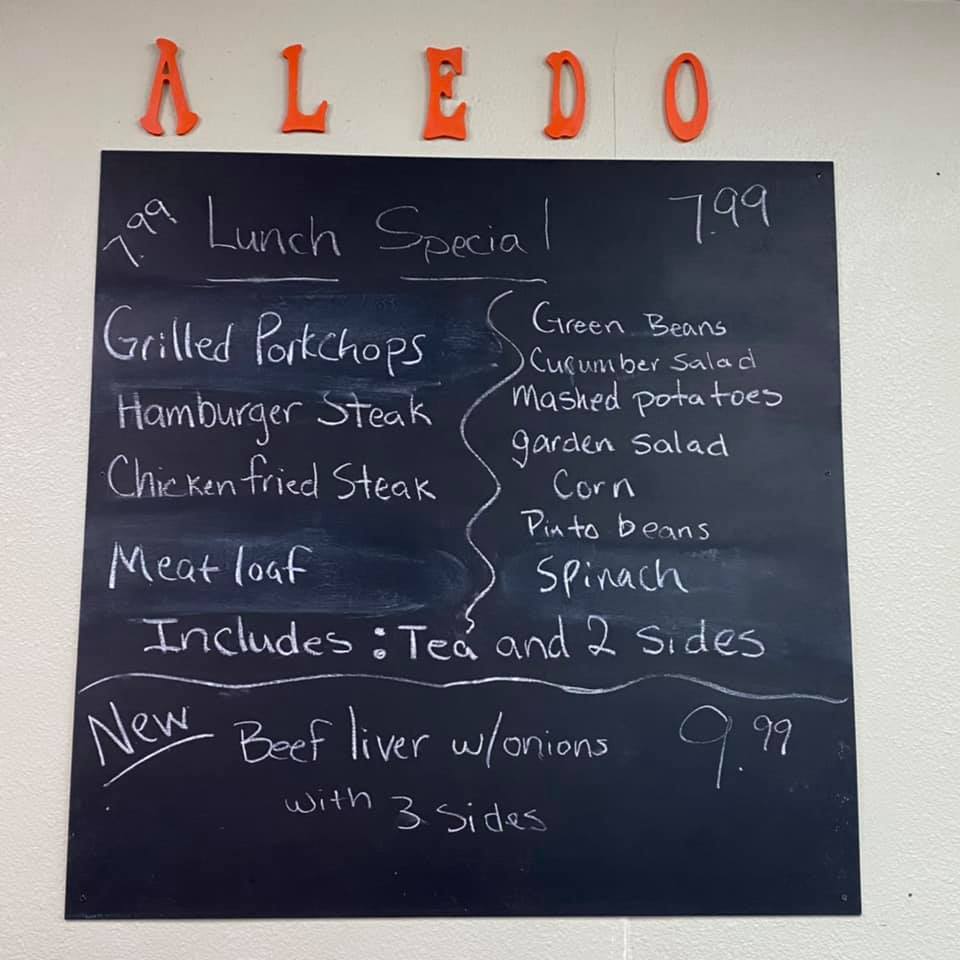 ALEDO
7.99 Lunch Special 7.99
Grilled Porkchops
Hamburger Steak
Chicken fried Steak
Meat loaf
Green Beans
Cucumber Salad
Mashed potatoes
garden salad
Corn
Pinto beans
Spinach
Includes: Tea and 2 Sides
New Beef liver w/onions 9.99
with 3 Sides